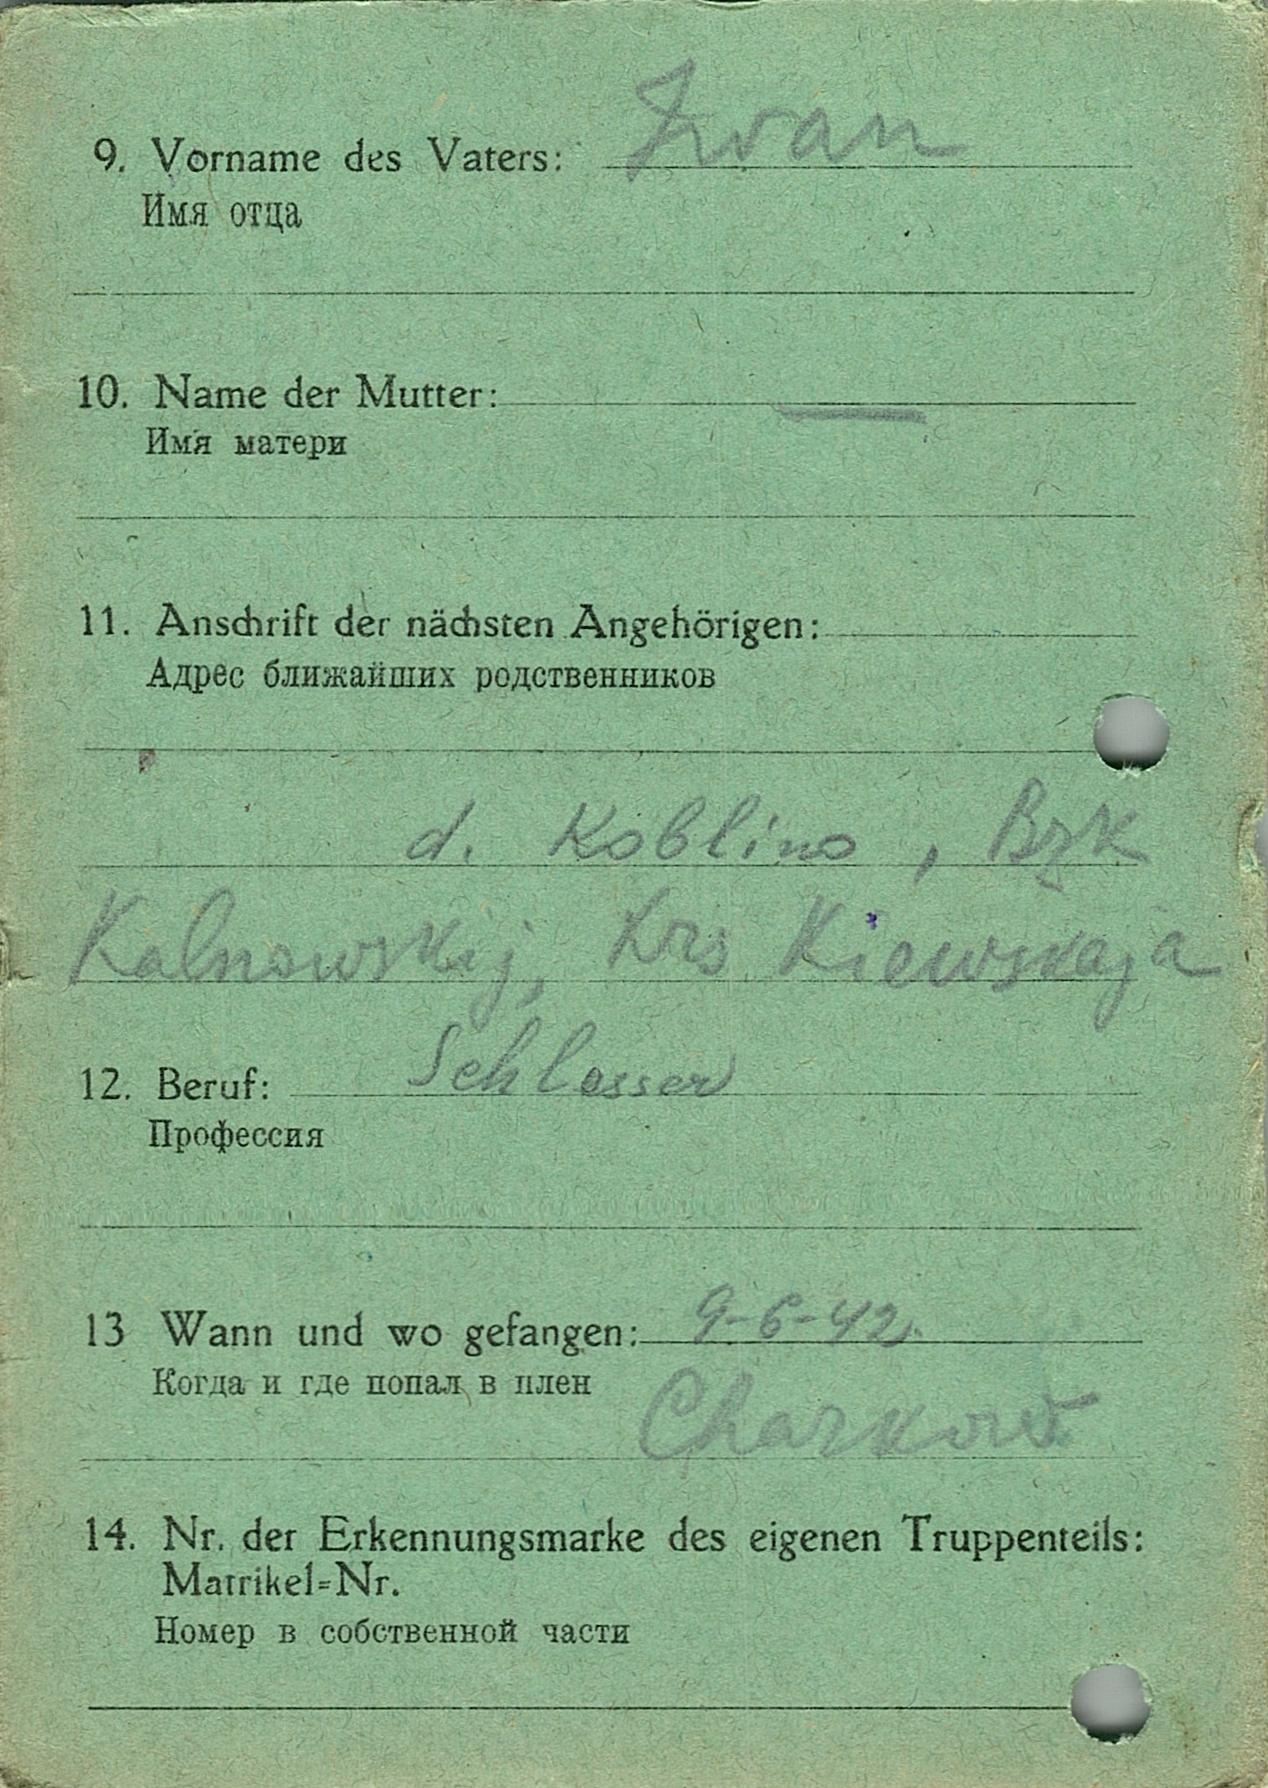 9. Vorname des Vaters: Iwan
Имя отца
10. Name der Mutter: —
Имя матери
11. Anschrift der nächsten Angehörigen:
Адрес ближайших родственников
d. Koblino, Bzk
Kalnowskij, Krs Kiewskaja
12. Beruf: Schlosser
Профессия
13 Wann und wo gefangen: 9-6-42.
Когда и где попал в плен
Charkow
14. Nr. der Erkennungsmarke des eigenen Truppenteils:
Matrikel=Nr.
Номер в собственной части